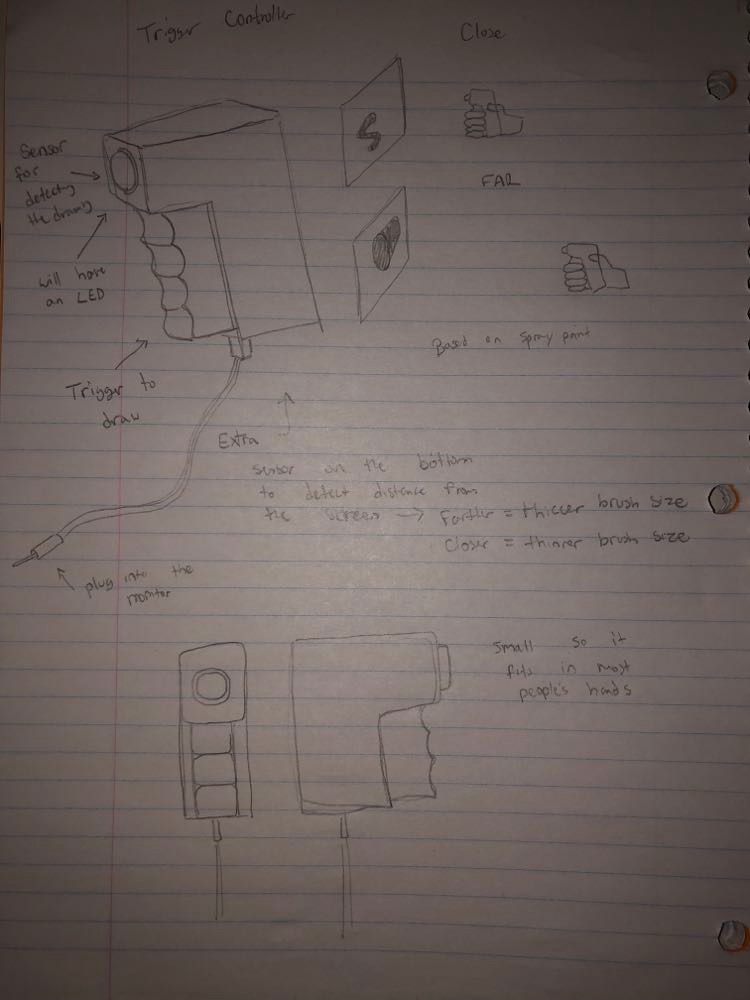 Trigger Controller
Close
S
Sensor
for
detecting
the drawing
FAR
will have
an LED
Based on Spray paint
Trigger to
draw
Extra
Sensor on the bottom
to detect distance from
the screen → Farther = thiccer brush size
Closer = thinner brush size
plug into the
monitor
Small so it
fits in most
people's hands